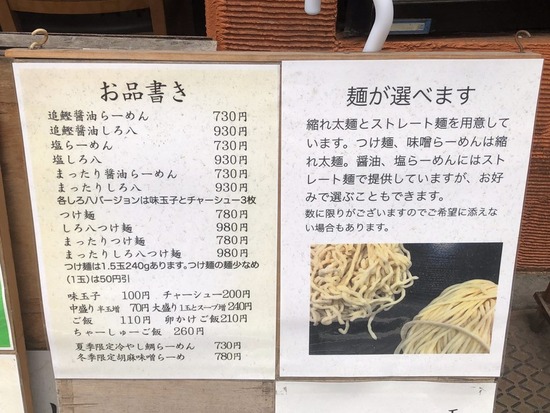 お品書き
追鰹醤油らーめん 730円
追鰹醤油しろ八 930円
塩らーめん 730円
塩しろ八 930円
まったり醤油らーめん 730円
まったりしろ八 930円
各しろ八バージョンは味玉子とチャーシュー3枚
つけ麺 780円
しろ八つけ麺 980円
まったりつけ麺 780円
まったりしろ八つけ麺 980円
つけ麺は1.5玉240gあります。つけ麺の麺少なめ
(1玉)は50円引
味玉子 100円 チャーシュー200円
中盛り半玉増 70円 大盛り1玉とスープ増240円
ご飯 110円 卵かけご飯210円
ちゃーしゅーご飯 260円
夏季限定冷やし鯛らーめん 730円
冬季限定胡麻味噌らーめ 780円
麺が選べます
縮れ太麺とストレート麺を用意し
ています。つけ麺、味噌らーめんは縮
れ太麺。醤油、塩らーめんにはスト
レート麺で提供していますが、お好
みで選ぶこともできます。
数に限りがございますのでご希望に添えな
い場合もあります。